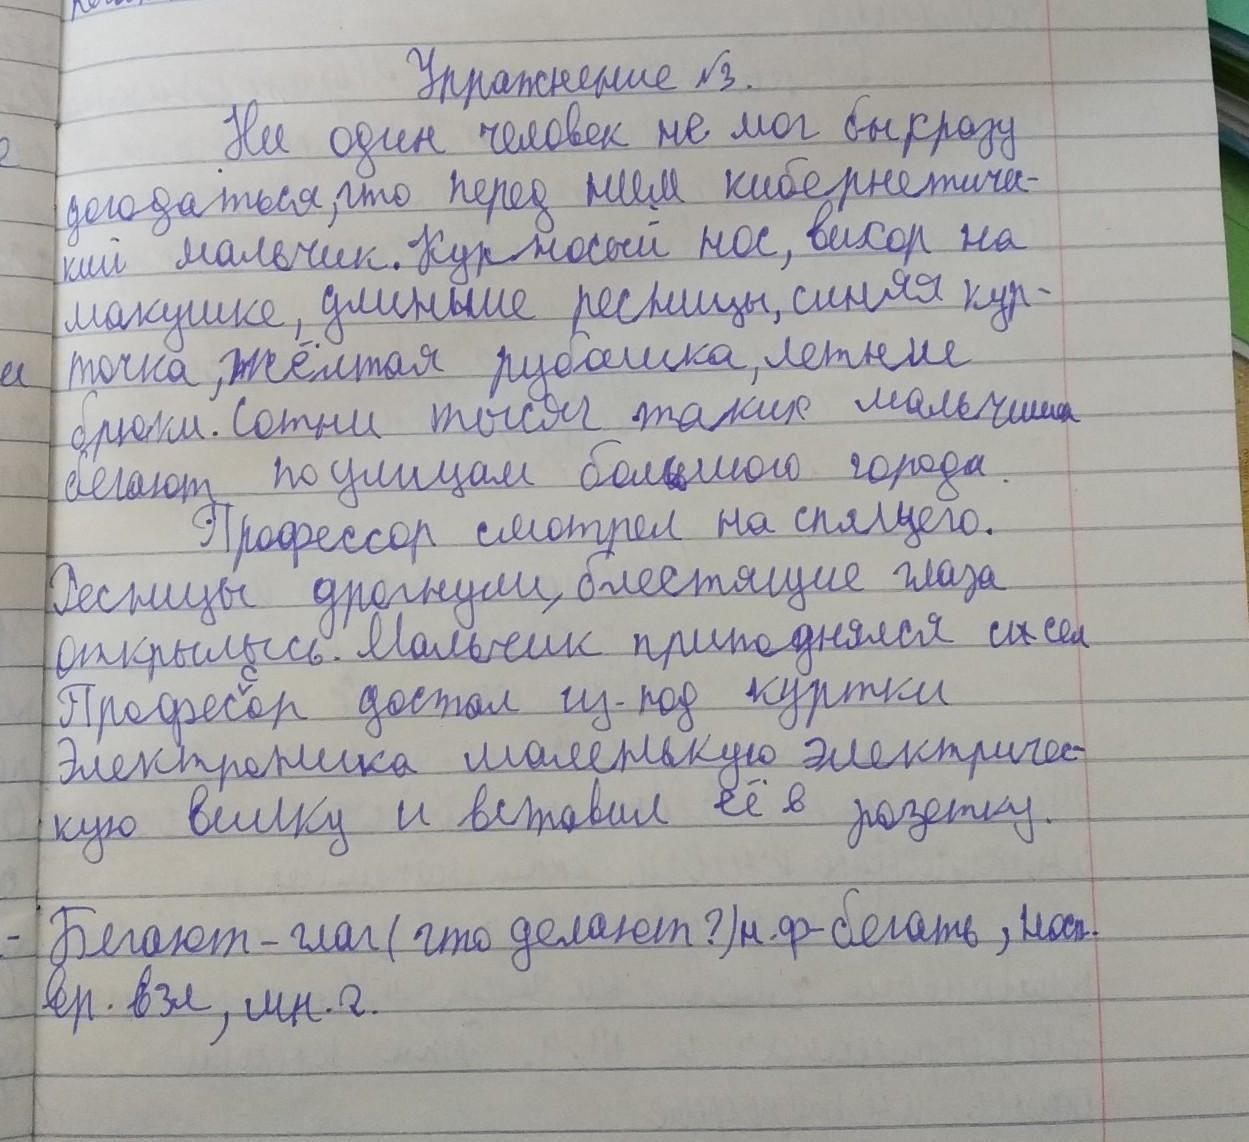 Упражнение №3.
Ни один человек не мог бы сразу
догодаться, что перед ним кибернетиче-
кий мальчик. Курносый нос, вихор на
макушке, длиные ресницы, синяя кур-
точка, жёлтая рубашка, летние
брюки. Сотни тысяч таких мальчишек
бегают по улицам большого города.
Профессор смотрел на спящего.
Ресницы дрогнули, блестящие глаза
открылысь. Мальчик приподнялся и сел
Професcор достал из-под куртки
Электроника маленькую электричес-
кую вилку и вставил её в розетку.
- Бегают - глаг (что делают?) н.ф - бегать,
вр. 3л, мн.ч.